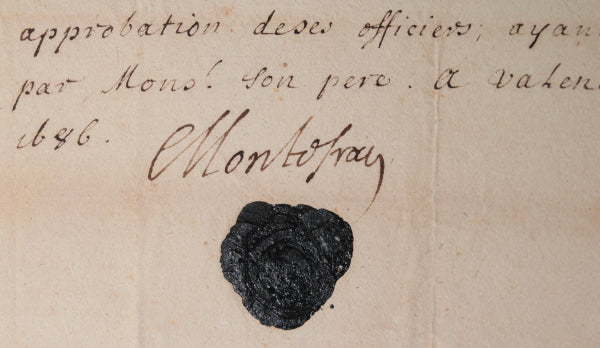 approbation deses officiers, ayan
par Mons.r Son pere. A Valen
1686.
Montefray